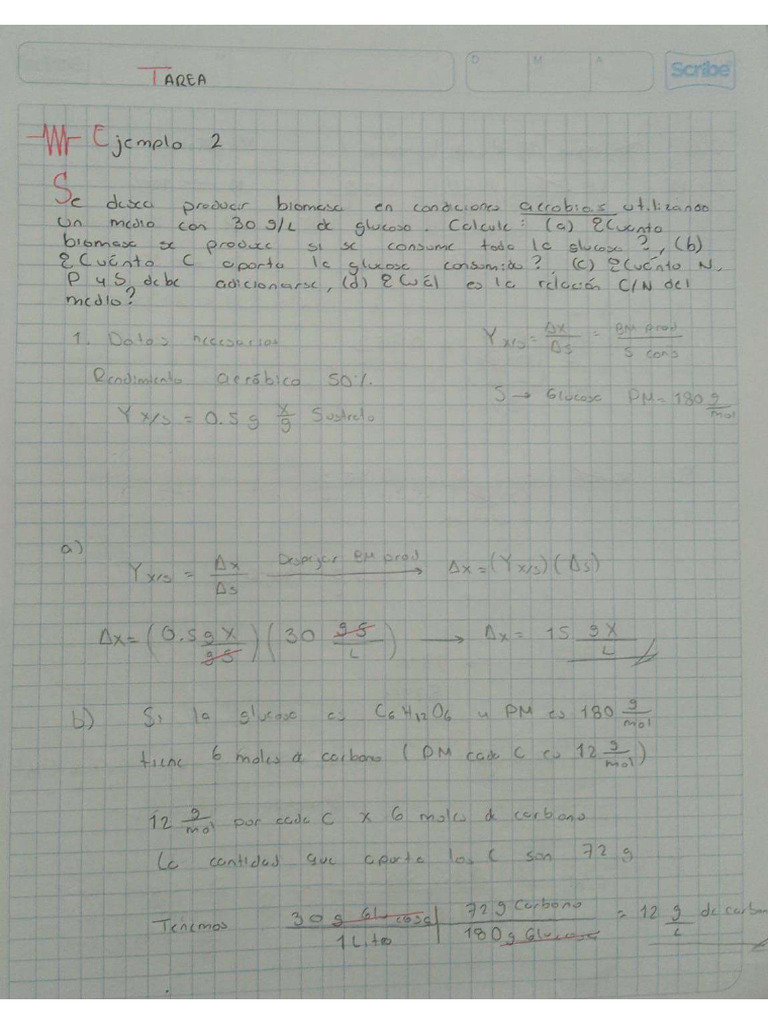 D M A
Scribe
TAREA
Ejemplo 2
Se desea producir biomasa en condiciones aerobias utilizando
un medio con 30 g/L de glucosa. Calcule: (a) ¿Cuanto
biomasa se produce si se consume toda la glucosa?, (b)
¿Cuánto C aporta la glucosa consumida?, (c) ¿Cuánto N,
P y S, debe adicionarse, (d) ¿Cuál es la relación C/N del
medio?
1. Datos necesarios
Y x/s = Δx/Δs = BM prod/S cons
Rendimiento aeróbico 50%
S → Glucosa PM = 180 g/mol
Y x/s = 0.5 g x/g Sustrato
a)
Y x/s = Δx/Δs Despejar BM prod → Δx = (Y x/s)(Δs)
Δx = (0.5 g X/g S)(30 g S/L) → Δx = 15 g X/L
b) Si la glucosa es C6H12O6 y PM es 180 g/mol
tiene 6 moles de carbono (PM cada C es 12 g/mol)
12 g/mol por cada C x 6 moles de carbono
La cantidad que aporta los C son 72 g
Tenemos 30 g Glucosa/1 Litro | 72 g Carbono/180 g Glucosa = 12 g/L de carbon